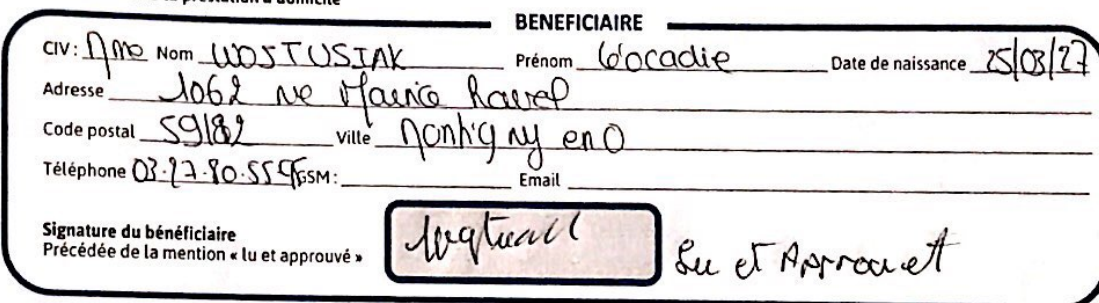 prestation à domicile
BENEFICIAIRE
CIV: Mme Nom WOSTUSIAK Prénom Léocadie Date de naissance 25/03/27
Adresse 1062 rue Maurice
Code postal 59182 Ville Montigny en O
Téléphone 03.27.80.55 GSM: Email
Signature du bénéficiaire
Précédée de la mention « lu et approuvé »
Lu et Approuvet